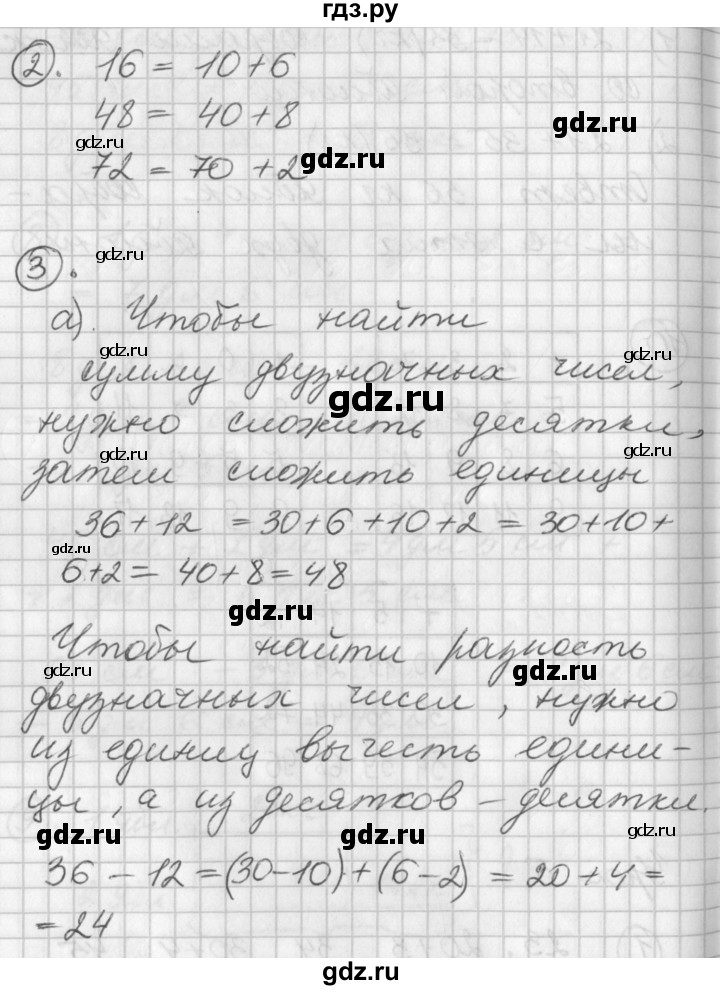 гдз.ру
2. 16 = 10+6
48 = 40+8
gdz.ru
gdz.ru
gdz.ru
72 = 70 +2
3.
gdz.ru
а). Чтобы найти
gdz.ru
gdz.ru
сумму двузначных чисел,
gdz.ru
нужно сложить десятки,
gdz.ru
gdz.ru
затем сложить единицы
36+12 = 30+6+10+2 = 30+10+
gdz.ru
6+2 = 40+8 = 48
gdz.ru
Чтобы найти разность
gdz.ru
gdz.ru
двузначных чисел, нужно
из единиц вычесть едини-
цы, а из десятков - десятки.
gdz.ru
gdz.ru
gdz.ru
36 - 12 = (30-10)+(6-2) = 20+4=
= 24
gdz.ru